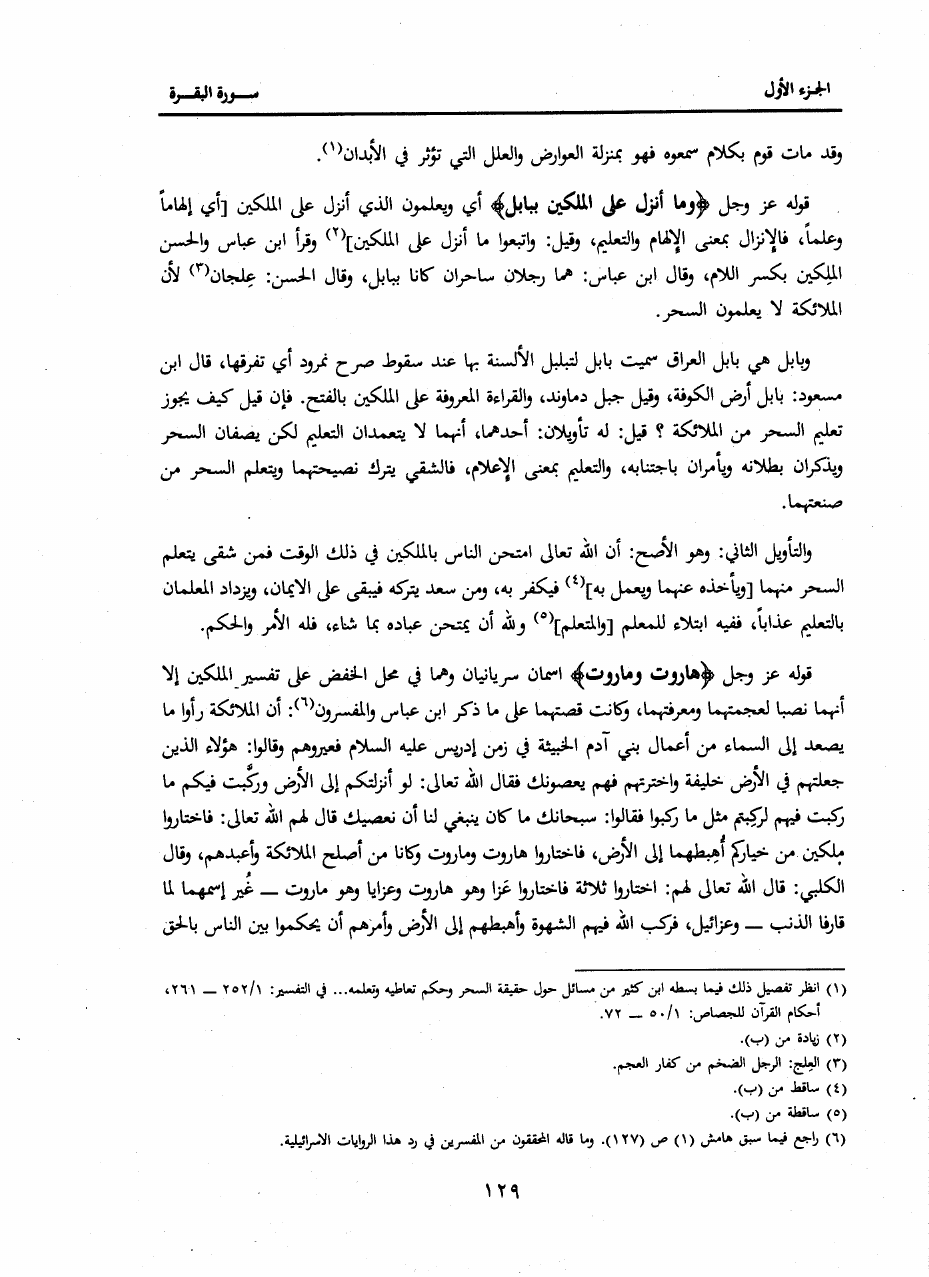 الجزء الأول
ســورة البقــرة
وقد مات قوم بكلام سمعوه فهو بمنزلة العوارض والعلل التي تؤثر في الأبدان(١).
قوله عز وجل ﴿وما أنزل على الملكين ببابل﴾ أي ويعلمون الذي أنزل على الملكين [أي إلهاماً
وعلماً، فالإنزال بمعنى الإلهام والتعليم، وقيل: واتبعوا ما أنزل على الملكين](٢) وقرأ ابن عباس والحسن
الملِكين بكسر اللام، وقال ابن عباس: هما رجلان ساحران كانا ببابل، وقال الحسن: عِلجان(٣) لأن
الملائكة لا يعلمون السحر.
وبابل هي بابل العراق سميت بابل لتبلبل الألسنة بها عند سقوط صرح نمرود أي تفرقها، قال ابن
مسعود: بابل أرض الكوفة، وقيل جبل دماوند، والقراءة المعروفة على الملكين بالفتح. فإن قيل كيف يجوز
تعليم السحر من الملائكة ؟ قيل: له تأويلان: أحدهما، أنهما لا يتعمدان التعليم لكن يصفان السحر
ويذكران بطلانه ويأمران باجتنابه، والتعليم بمعنى الإعلام، فالشقي يترك نصيحتهما ويتعلم السحر من
صنعتهما.
والتأويل الثاني: وهو الأصح: أن الله تعالى امتحن الناس بالملكين في ذلك الوقت فمن شقى يتعلم
السحر منهما [ويأخذه عنهما ويعمل به](٤) فيكفر به، ومن سعد يتركه فيبقى على الايمان، ويزداد المعلمان
بالتعليم عذاباً، ففيه ابتلاء للمعلم [والمتعلم](٥) ولله أن يمتحن عباده بما شاء، فله الأمر والحكم.
قوله عز وجل ﴿هاروت وماروت﴾ اسمان سريانيان وهما في محل الخفض على تفسير الملكين إلا
أنهما نصبا لعجمتهما ومعرفتهما، وكانت قصتهما على ما ذكر ابن عباس والمفسرون(٦): أن الملائكة رأوا ما
يصعد إلى السماء من أعمال بني آدم الخبيثة في زمن إدريس عليه السلام فعيروهم وقالوا: هؤلاء الذين
جعلتهم في الأرض خليفة واخترتهم فهم يعصونك فقال الله تعالى: لو أنزلتكم إلى الأرض وركَّبت فيكم ما
ركبت فيهم لركِبتم مثل ما ركبوا فقالوا: سبحانك ما كان ينبغي لنا أن نعصيك قال لهم الله تعالى: فاختاروا
ملكين من خياركم أُهبطهما إلى الأرض، فاختاروا هاروت وماروت وكانا من أصلح الملائكة وأعبدهم، وقال
الكلبي: قال الله تعالى لهم: اختاروا ثلاثة فاختاروا عَزا وهو هاروت وعزايا وهو ماروت — غُير إسمهما لما
قارفا الذنب — وعزائيل، فركب الله فيهم الشهوة وأهبطهم إلى الأرض وأمرهم أن يحكموا بين الناس بالحق
(١) انظر تفصيل ذلك فيما بسطه ابن كثير من مسائل حول حقيقة السحر وحكم تعاطيه وتعلمه... في التفسير: ٢٥٢/١ — ٢٦١،
أحكام القرآن للجصاص: ٥٠/١ — ٧٢.
(٢) زيادة من (ب).
(٣) العِلج: الرجل الضخم من كفار العجم.
(٤) ساقط من (ب).
(٥) ساقطة من (ب).
(٦) راجع فيما سبق هامش (١) ص (١٢٧). وما قاله المحققون من المفسرين في رد هذا الروايات الاسرائيلية.
١٢٩